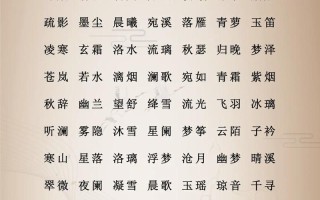 疏影 墨尘 晨曦 宛溪 落雁 青萝 玉笛
凌寒 玄霜 洛水 流璃 秋瑟 归晚 梦泽
苍岚 若水 漓烟 澜歌 宛如 青霜 紫烟
秋辞 幽兰 望舒 绛雪 流光 飞羽 冰璃
听澜 雾隐 沐雪 星阑 梦筝 云陌 子衿
寒山 星落 洛璃 浮梦 沧月 幽梦 晴溪
翠微 夜阑 凝雪 晨歌 玉瑶 琼音 千寻